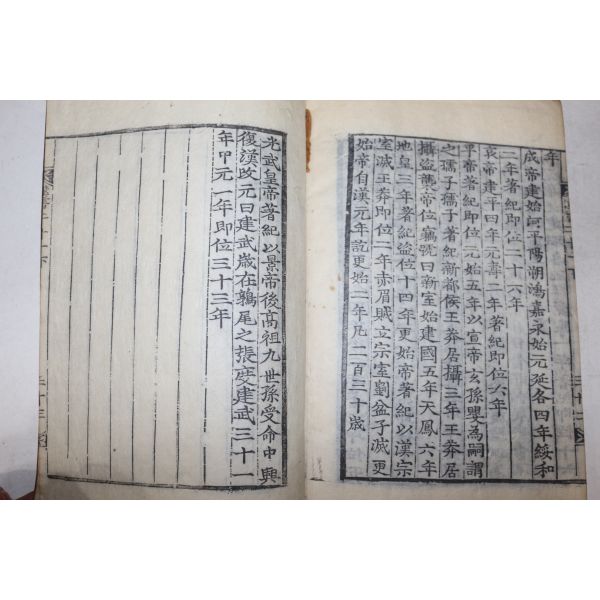 年
成帝建始河平陽潮鴻嘉永始元延各四年綏和
二年著紀即位二十六年
哀帝建平四年元壽二年著紀即位六年
平帝著紀即位元始五年以宣帝玄孫嬰為嗣謂
之孺子孺子著紀新都侯王莽居攝三年王莽居
攝盜襲帝位竊號曰新室始建國五年天鳳六年
地皇三年著紀盜位十四年更始帝著紀以漢宗
室滅王莽即位二年赤眉賊立宗室劉盆子滅更
始帝自漢元年訖更始二年凡二百三十歲
光武皇帝著紀以景帝後高祖九世孫受命中興
復漢改元曰建武歲在鶉尾之張度建武三十一
年甲元一年即位三十三年